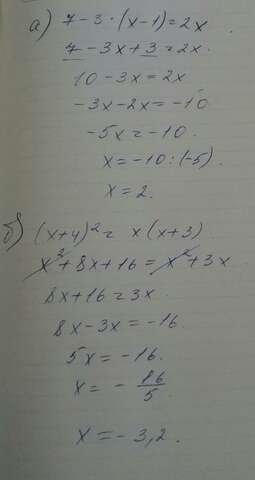 а) 7-3·(x-1)=2x.
7-3x+3=2x.
10-3x=2x
-3x-2x=-10
-5x=-10.
x=-10:(-5).
x=2.
б) (x+4)²= x(x+3)
x²+8x+16=x²+3x
8x+16=3x.
8x-3x=-16.
5x=-16.
x=-16/5.
x=-3,2.